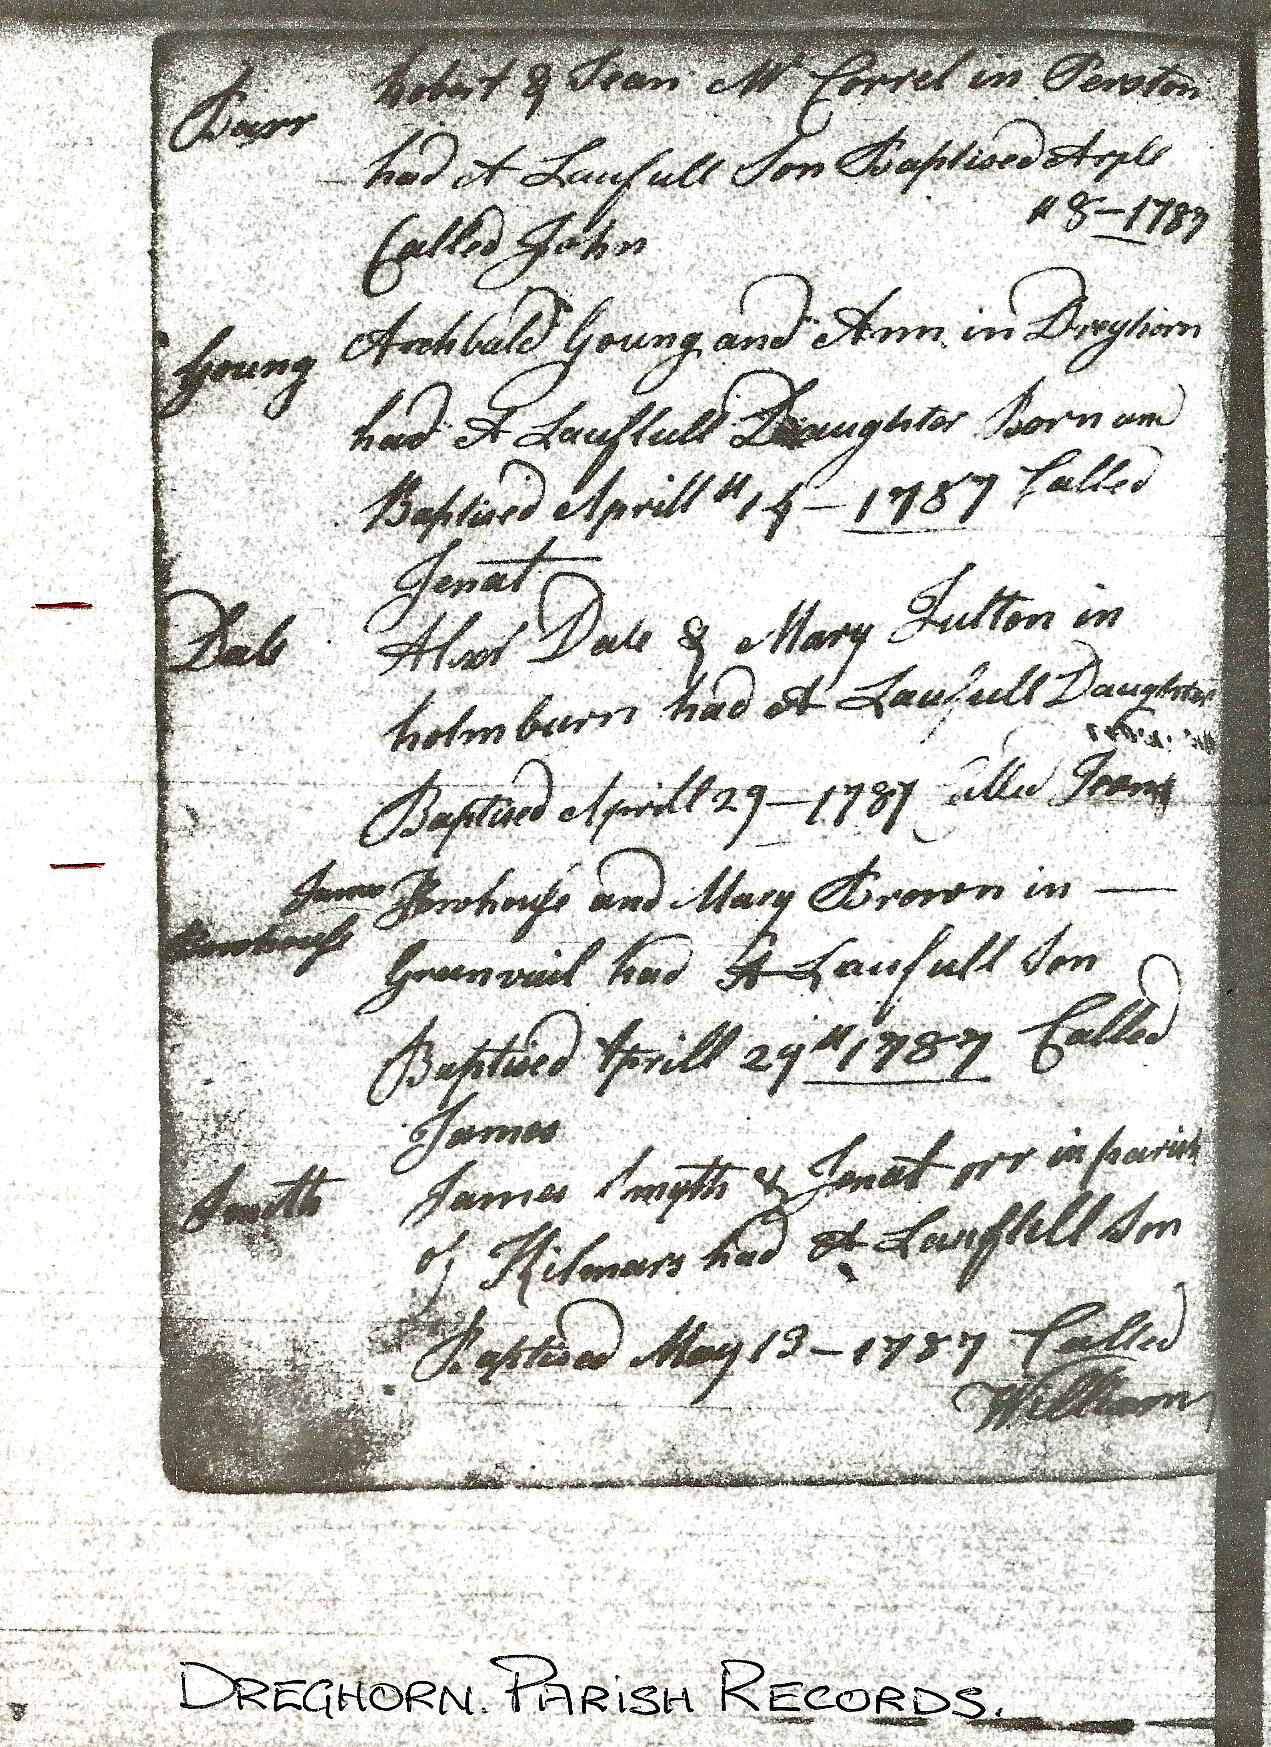 Barr
Robert & Jean Mc Correl in Perston
had A Laufull Son Baptised Aple
11 8 - 1787
Called John
Young
Archbald Young and Ann in Dreghorn
had A Laufhull Daughter Born and
Baptised Aprill 11 14 - 1787 Called
Jenat
Dale
Alexr Dale & Mary Fulton in
holmburn had A Laufull Daughter
Baptised Aprill 29 - 1787 Called
James
and Mary Brown in
Greenvail had A Laufull Son
Baptised Aprill 29 11 1787 Called
James
Smith
James Smyth & Jenat orr in parish
of Kilmars had A Laufhell Son
Baptised May 13 - 1787 Called
William
DREGHORN. PARISH RECORDS.